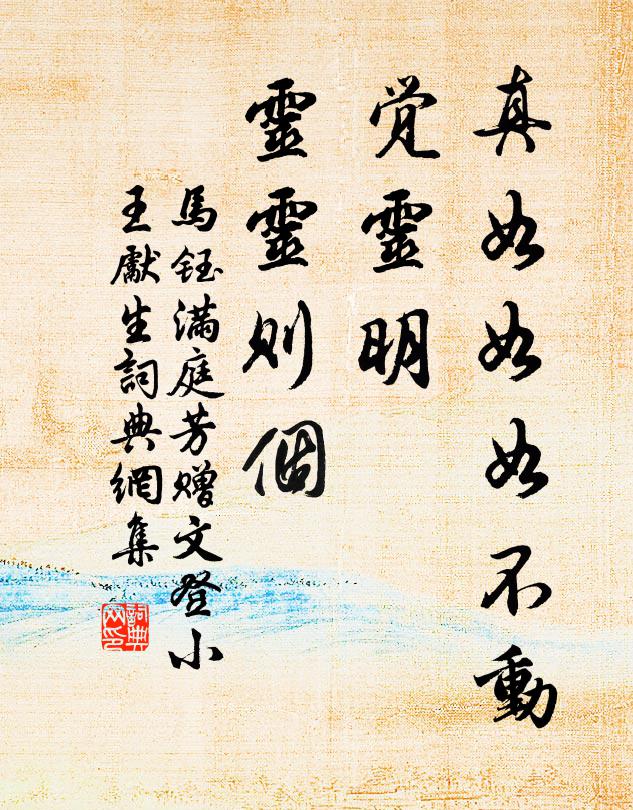 真如如如不動
覺靈明
靈靈則個
馬鈺滿庭芳贈文登小
王獻生詞典網集
詞典
网印